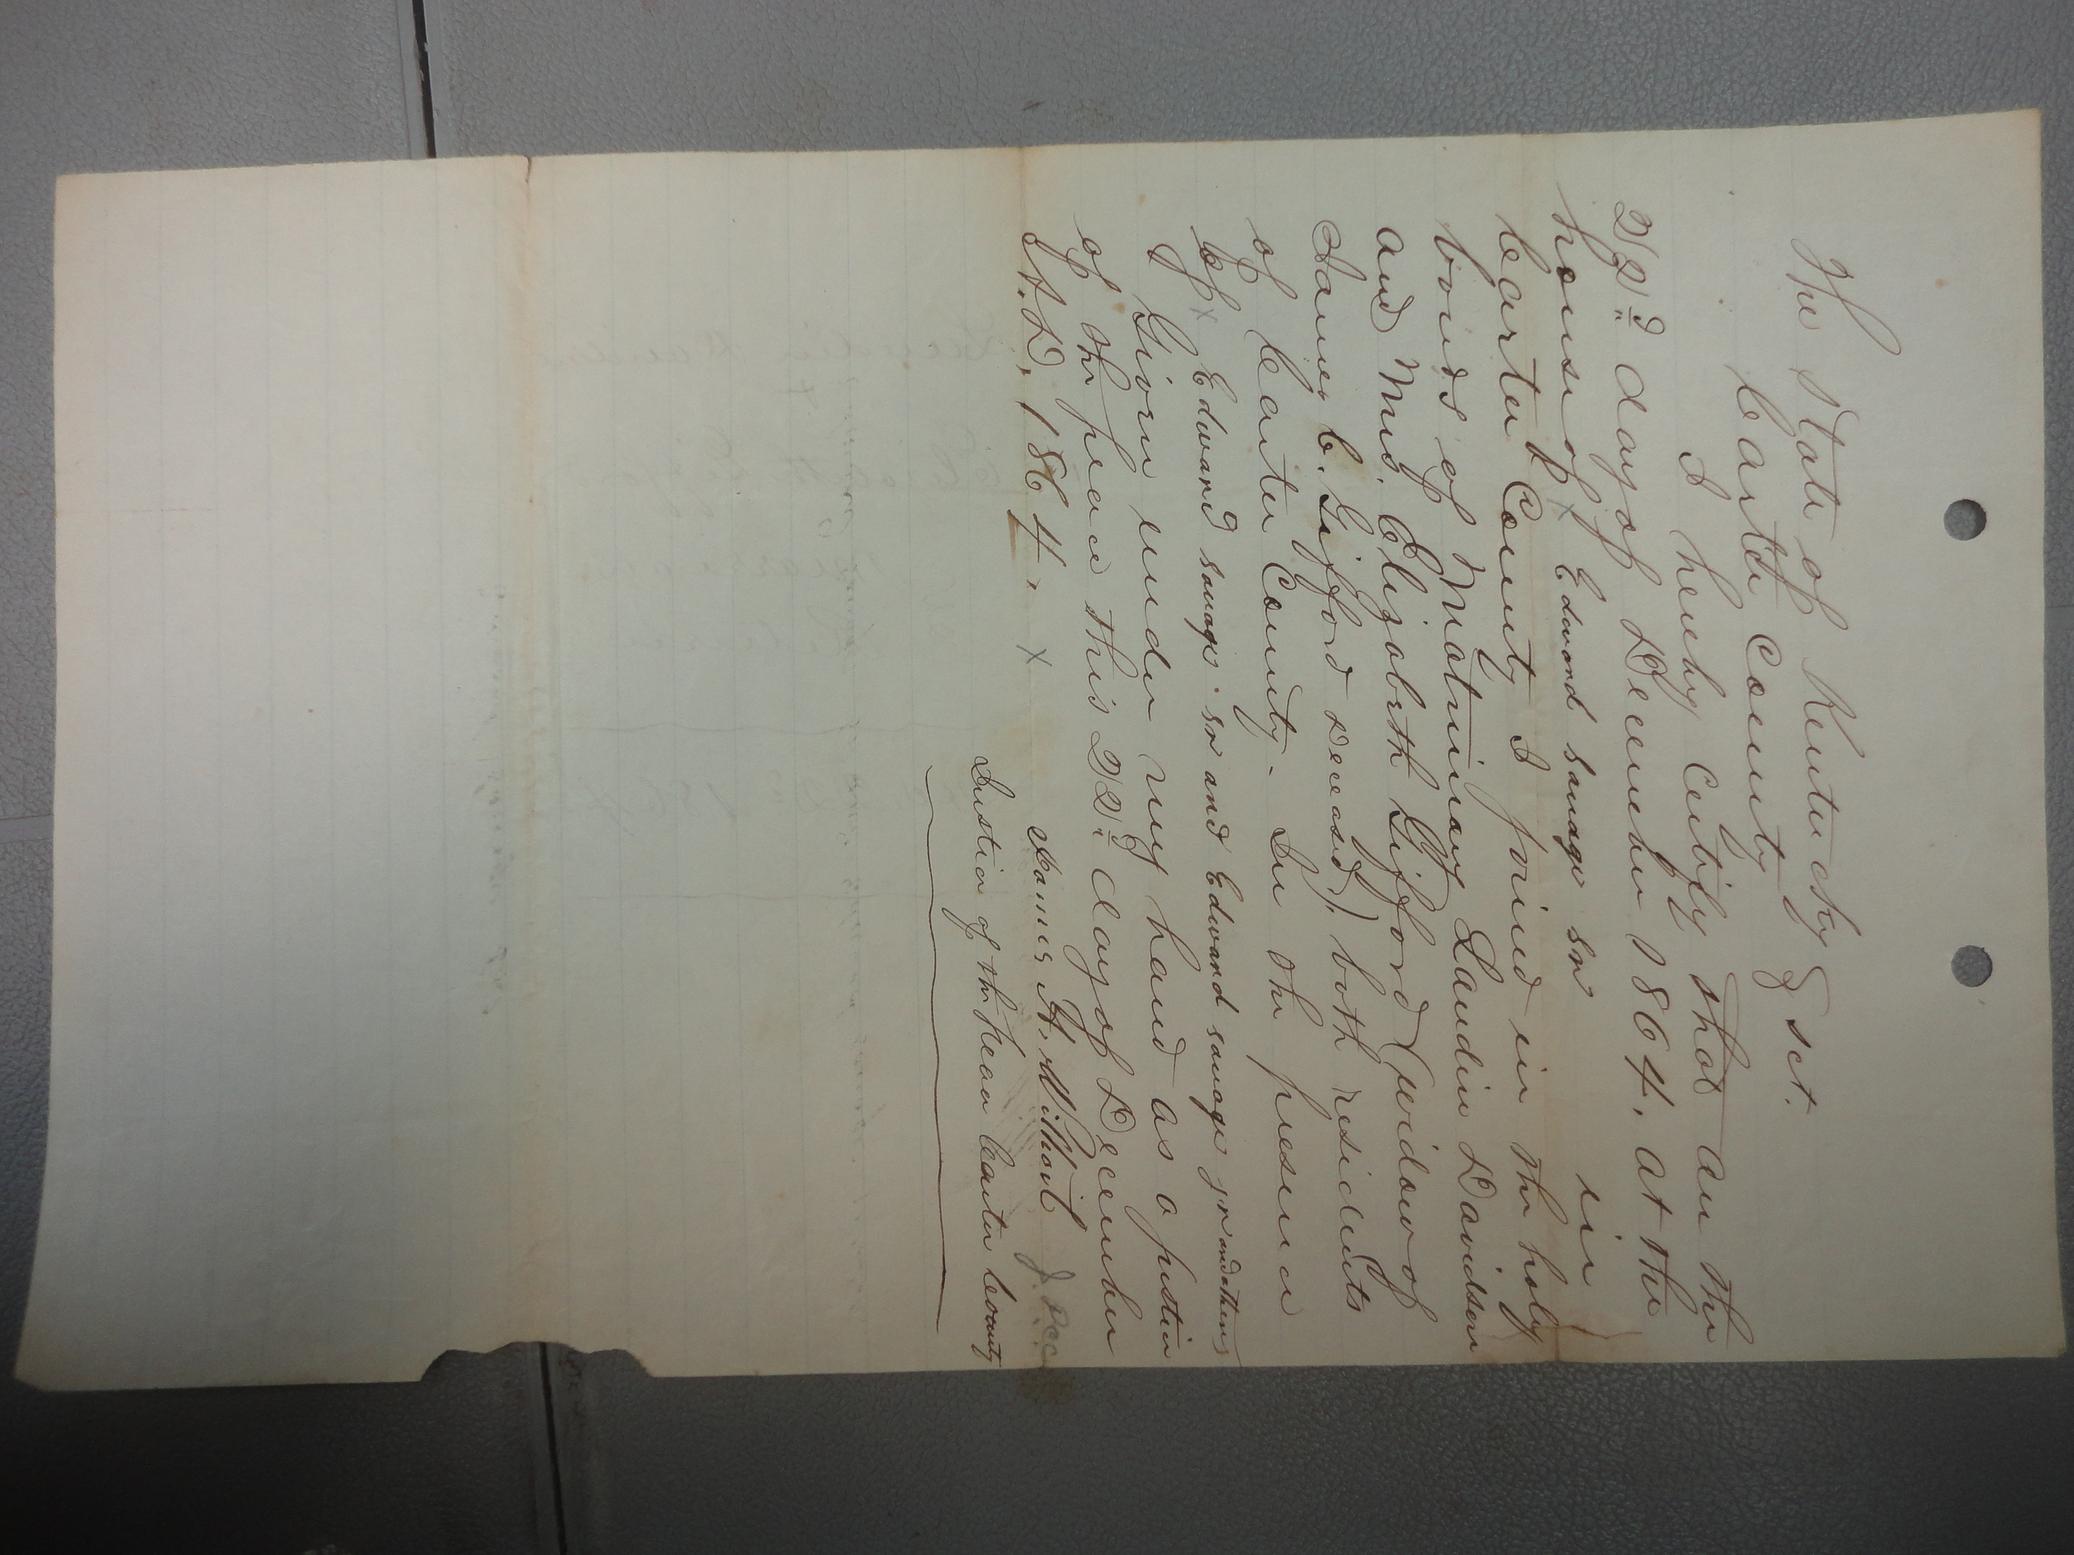 The State of Kentucky } sct.
Carter County
I hereby Certify that on the
22d day of December 1864, at the
house of x Edward Savage sr in
Carter County I joined in the holy
bonds of Matrimony Landin Davidson
and Mrs. Elizabeth Gifford (widow of
James C. Gifford deceased), both residents
of Carter County. In the presence
of x Edward Savage sr and Edward Savage jr and others
Given under my hand as a justice
of the peace this 22d day of December
A.D. 1864. x
James A. J. P. C. C.
Justice of the Peace Carter County